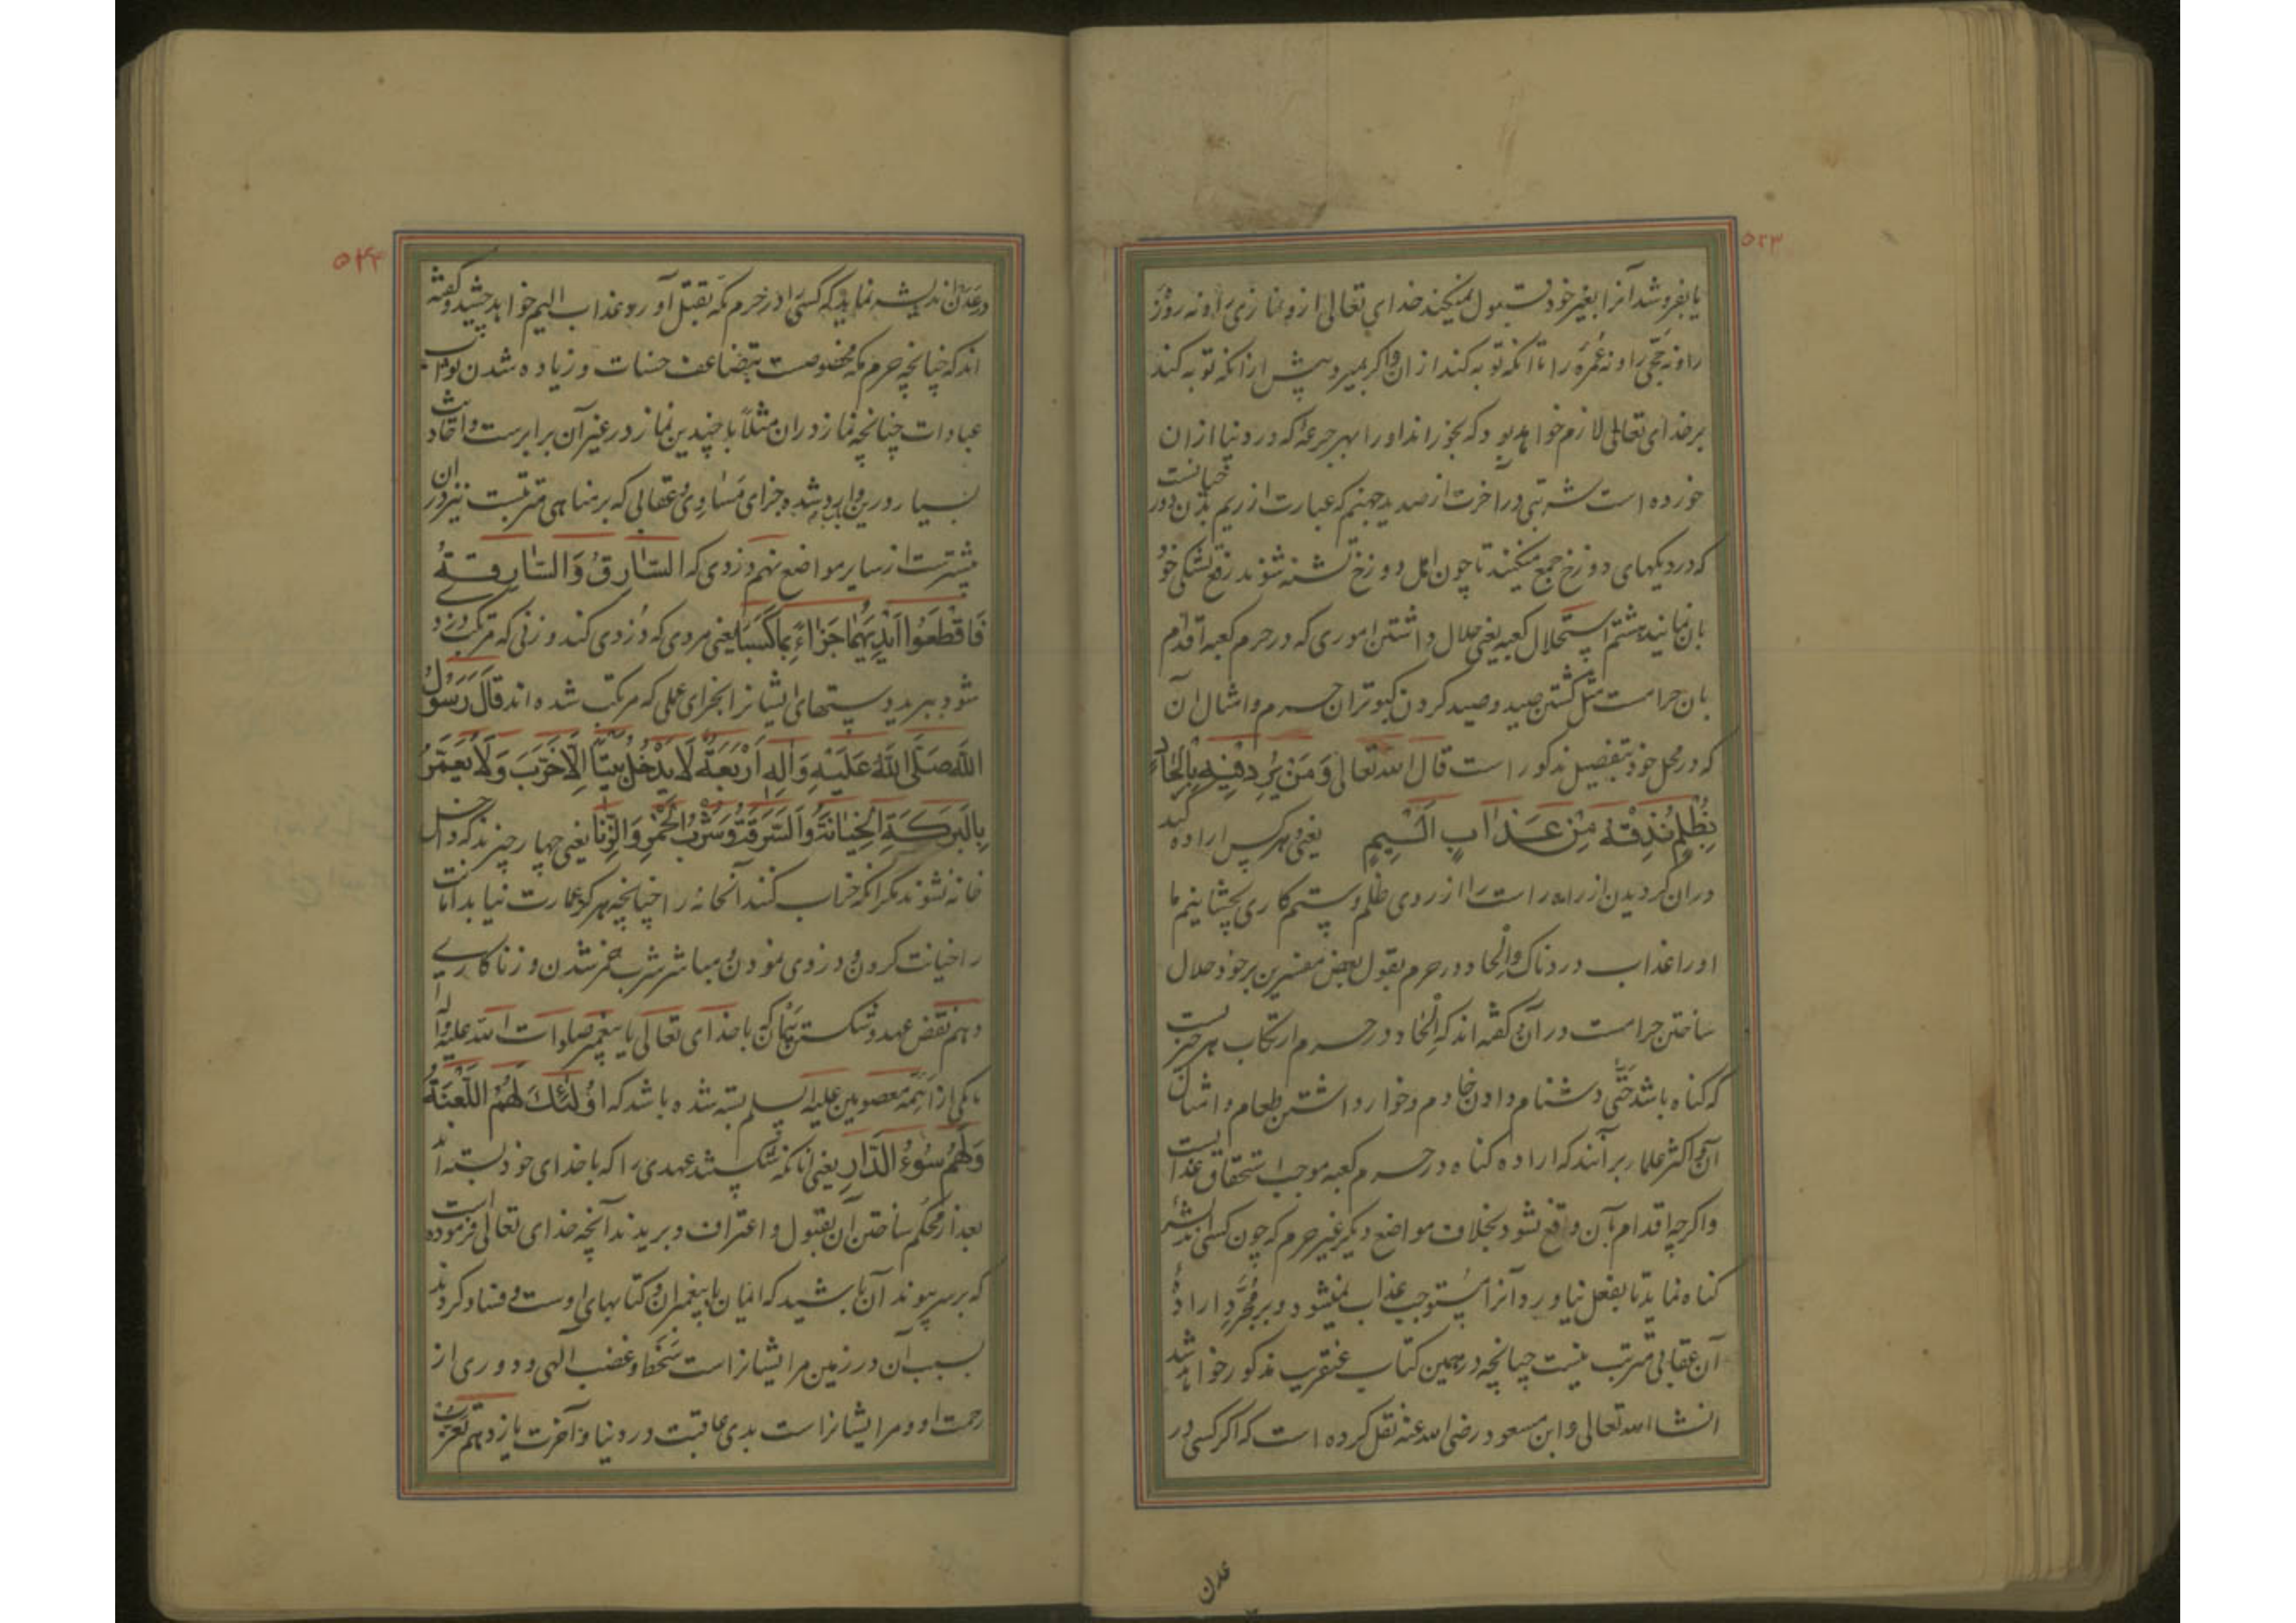 ۵۴۳
یا بفروشد آنرا بغیر خود قبول نمیکند خدای تعالی ازو نمازی را و نه روزۀ
را و نه حجّی را و نه عُمرۀ را تا آنکه توبه کند از ان و اگر بمیرد پیش از انکه توبه کند
بر خدای تعالی لازم خواهد بود که بخوراند او را بهر جرعۀ که در دنیا از ان
خورده است شربتی در آخرت از صدید جهنم که عبارت از ریم بدن
که در دیکهای دوزخ جمع میکنند تا چون اهل دوزخ تشنه شوند رفع تشنکی خود
بان نمایند هشتم استحلال کعبه یعنی حلال داشتن اموری که در حرم کعبه اقدام
بان حرامست مثل کشتن صید و صید کردن کبوتران حرم و امثال آن
که در محل خود بتفصیل مذکور است قال الله تعالی وَمَنْ يُرِدْ فِيهِ بِاِلْحَادٍ
بِظُلْمٍ نُذِقْهُ مِنْ عَذَابٍ اَلِيمٍ یعنی و هر کس اراده کند
در ان کردیدن از راه راست را از روی ظلم و ستمکاری بچشانیم ما
او را عذاب دردناک و اِلْحاد در حرم بقول بعض مفسرین بر خود حلال
ساختن حرامست در آن و کفته اند که اِلْحاد در حرم ارتکاب هر چیزیست
که کناه باشد حَتّی دشنام دادن خادم و خوار داشتن طعام و امثال
آن و اکثر علما بر آنند که اراده کناه در حرم کعبه موجب استحقاق عذابست
و اکرچه اقدام بآن واقع نشود بخلاف مواضع دیکر غیر حرم که چون کسی اندیشه
کناه نماید تا بفعل نیاورد آنرا مستوجب عذاب نمیشود و بر مُجَرَّدِ ارادۀ
آن عقابی مترتب نیست چنانچه در همین کتاب عنقریب مذکور خواهد شد
انشاء الله تعالی و ابن مسعود رضی الله عنه نقل کرده است که اکر کسی در
عدن
۵۴۴
در عَدَن اندیشه نماید که کسی را در حرم مکّه بقتل آورد عذاب الیم خواهد چشید و کفته
اند که چنانچه حرم مکه مخصوصست بتضاعف حسنات و زیاده شدن ثواب
عبادات چنانچه نماز در ان مثلاً با چندین نماز در غیر آن برابرست و احادیث
بسیار درین باب وارد شده جزای مَساوی و عقابی که بر مناهی مترتبست نیز در ان
بیشترست از سایر مواضع نهم دزدی که السّارِقُ وَالسّارِقَةُ
فَاقْطَعُوا اَيْدِيَهُما جَزاءً بِما كَسَبا یعنی مردی که دُزدی کند و زنی که مرتکب دزدی
شود ببرید دستهای ایشانرا بجزای عملی که مرتکب شده اند قالَ رَسُولُ
اللهِ صَلَّى اللهُ عَلَيْهِ وَالِهِ اَرْبَعَةٌ لَا يَدْخُلُ بَيْتاً اِلّا خَرِبَ وَلَا يَعْمُرُ
بِالْبَرَكَةِ الْخِيانَةُ وَالسَّرِقَةُ وَشُرْبُ الْخَمْرِ وَالزِّنا یعنی چهار چیز مذکور داخل
خانه نشوند مکر انکه خراب کنند آنخانه را چنانچه هرکز عمارت نیابد امانت
را خیانت کردن و دزدی نمودن و مباشر شرب خمر شدن و زناکاری
دهم نقض عهد و شکستن پیمان که با خدای تعالی یا پیغمبر صلوات الله علیه و اله
یا یکی از اَئِمّه معصومین علیهم السلم بسته شده باشد که اُولٰئِكَ لَهُمُ اللَّعْنَةُ
وَلَهُمْ سُوءُ الدّارِ یعنی آنانکه شکستند عهدی را که با خدای خود بسته اند
بعد از محکم ساختن آن بقبول و اعتراف و بریدند آنچه خدای تعالی فرموده است
که بر سر پیوند آن باشید که ایمان با پیغمبران و کتابهای اوست و فساد کردند
بسبب آن در زمین مر ایشانراست سَخَط و غضب الهی و دوری از
رحمت او و مر ایشانراست بدی عاقبت در دنیا و آخرت یازدهم تَعَرُّب